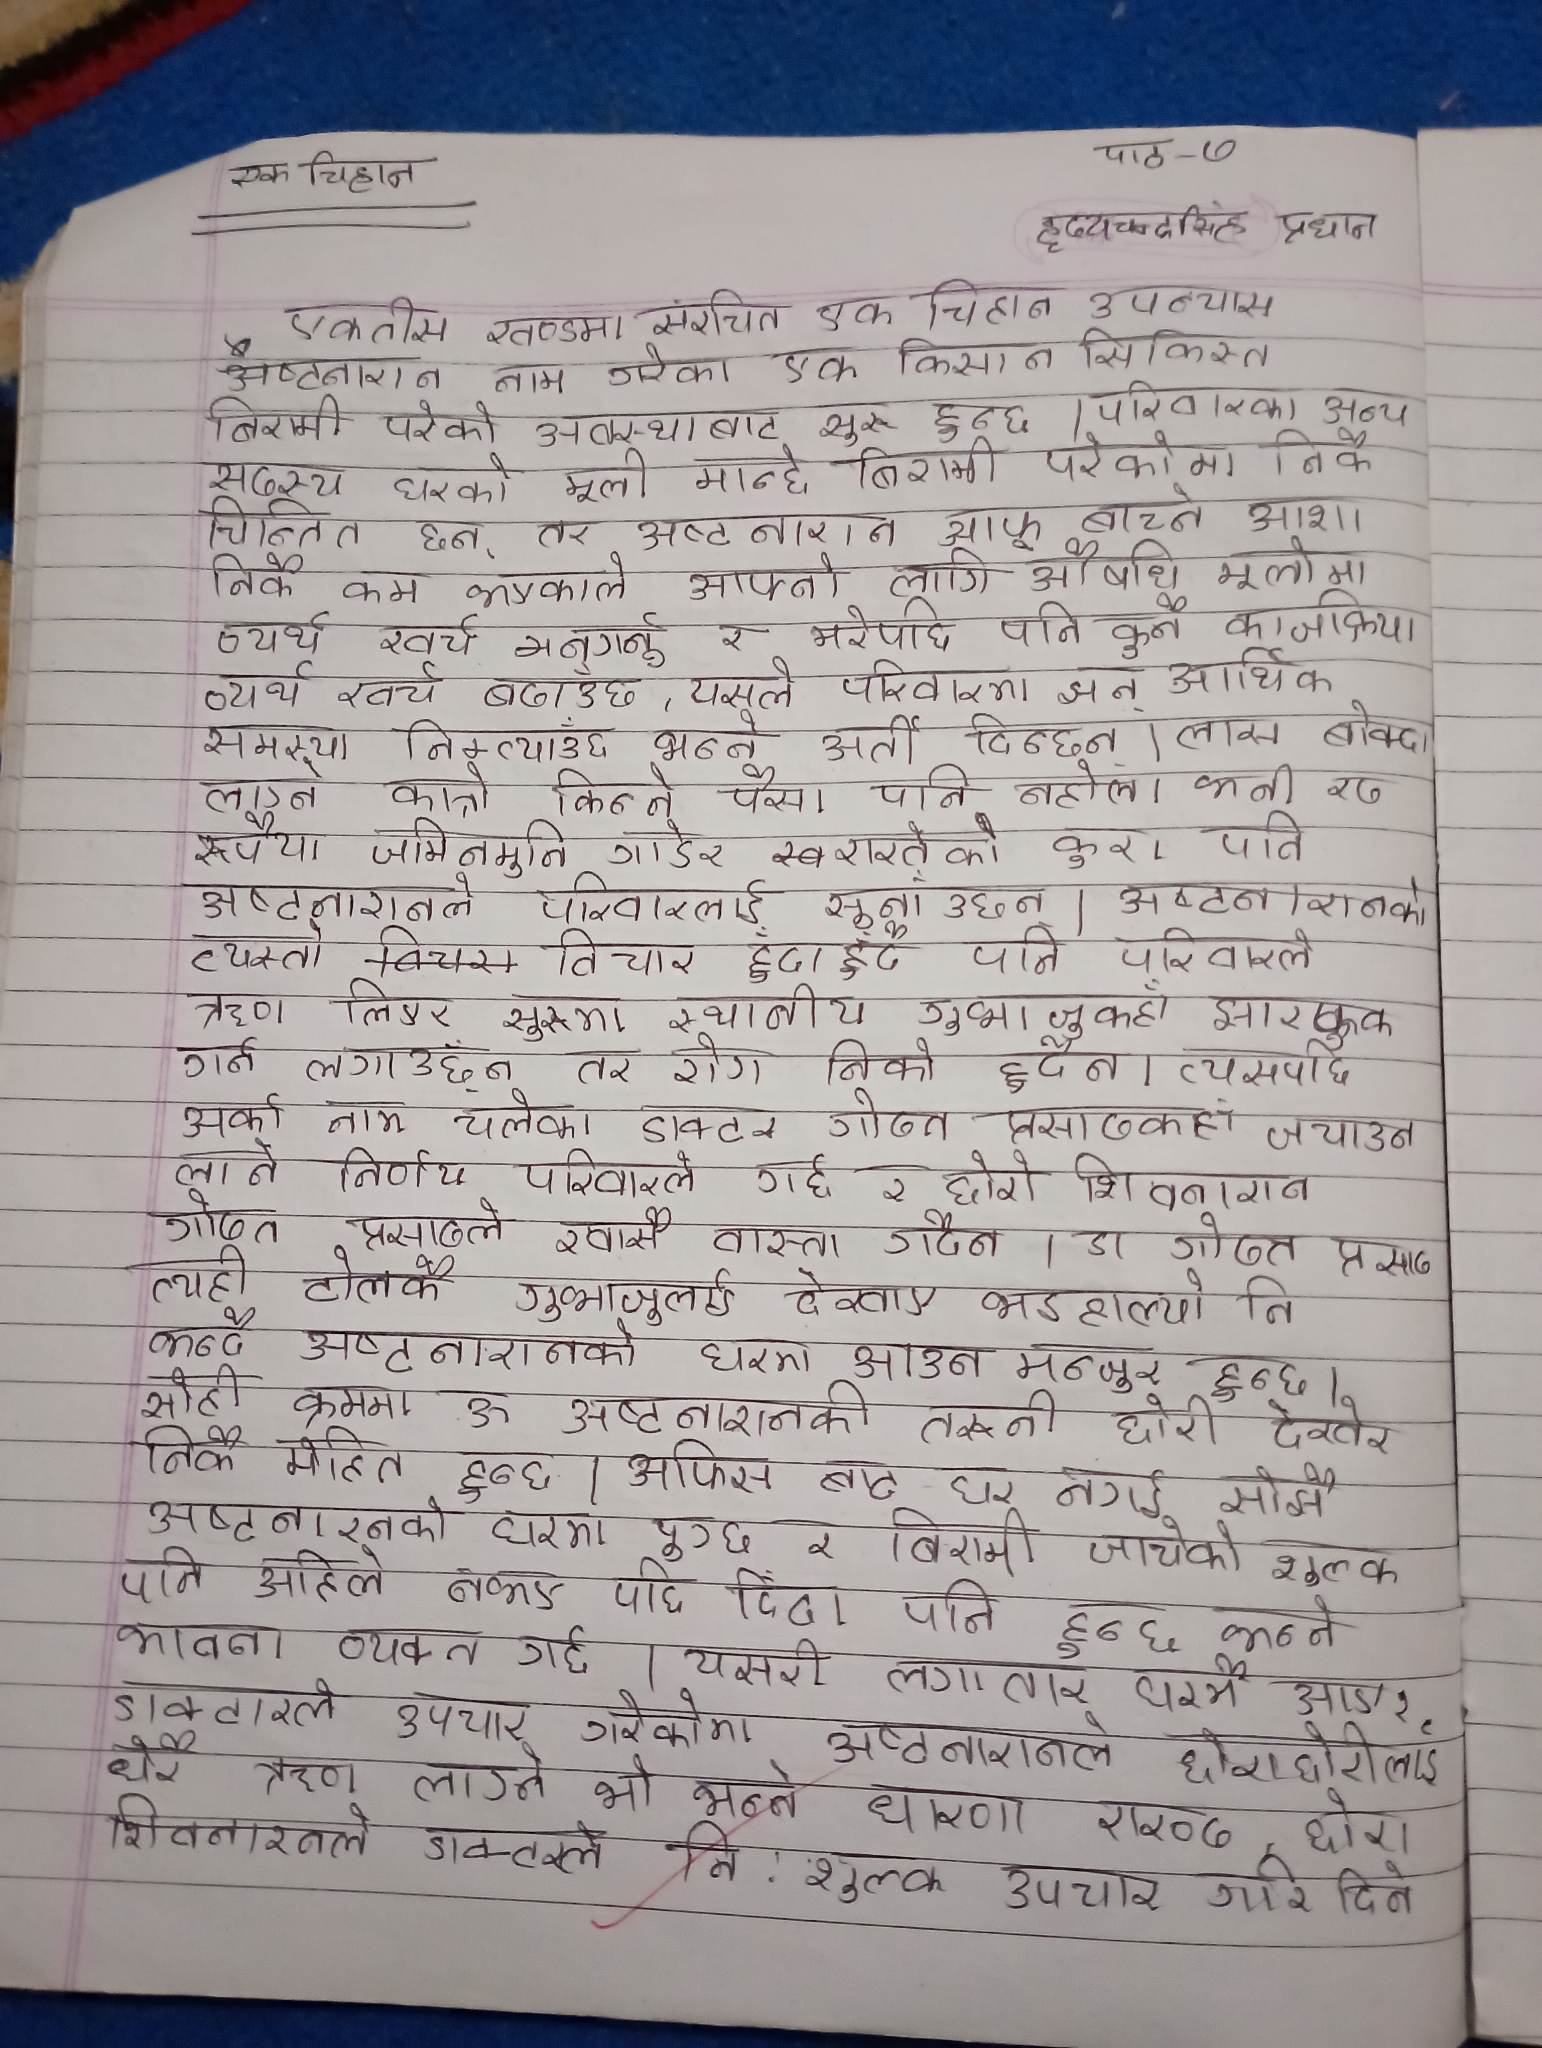 पाठ-७
एक चिहान
हृदयचन्द्रसिंह प्रधान
एकतीस खण्डमा संरचित एक चिहान उपन्यास
अष्टनारान नाम गरेका एक किसान सिकिस्त
बिरामी परेको अवस्थाबाट सुरू हुन्छ । परिवारका अन्य
सदस्य घरको मूली मान्छे बिरामी परेकोमा निकै
चिन्तित छन्, तर अष्टनारान आफू बाच्ने आशा
निकै कम भएकाले आफ्नो लागि औषधि मूलोमा
व्यर्थ खर्च नगर्नू र मरेपछि पनि कुनै काजक्रिया
व्यर्थ खर्च बढाउँछ, यसले परिवारमा झन् आर्थिक
समस्या निम्त्याउँछ भन्ने अर्ती दिन्छन् । लास बोक्दा
लाग्ने कात्रो किन्ने पैसा पनि नहोला भनी २८
रूपैया जमिनमुनि गाडेर राखेको कुरा पनि
अष्टनारानले परिवारलाई सुनाउछन् । अष्टनारानको
त्यस्तो विचार हुँदाहुँदै पनि परिवारले
ऋण लिएर सुरूमा स्थानीय गुभाजुकहाँ झारफुक
गर्न लगाउछन् तर रोग निको हुदैन । त्यसपछि
अर्का नाम चलेका डाक्टर गोदत्त प्रसादकहाँ जचाउन
लाने निर्णय परिवारले गर्छ र छोरो शिवनारान
गोदत्त प्रसादले खासै वास्ता गर्दैन । डा गोदत्त प्रसाद
त्यही टोलकै गुभाजुलाई देखाए भइहाल्यो नि
भन्दै अष्टनारानको घरमा आउन मन्जुर हुन्छ ।
सोही क्रममा ऊ अष्टनारानकी तरूनी छोरी देखेर
निकै मोहित हुन्छ । अफिस बाट घर नगई सोझै
अष्टनारनको घरमा पुग्छ र बिरामी जाचेको शुल्क
पनि अहिले नभए पछि दिँदा पनि हुन्छ भन्ने
भावना व्यक्त गर्छ । यसरी लगातार घरमै आएर
डाक्टारले उपचार गरेकोमा अष्टनारानले छोराछोरीलाई
धेरै ऋण लाग्ने भो भन्ने धारणा राख्छ, छोरा
शिवनारनले डाक्टरले नि: शुल्क उपचार गरि दिने